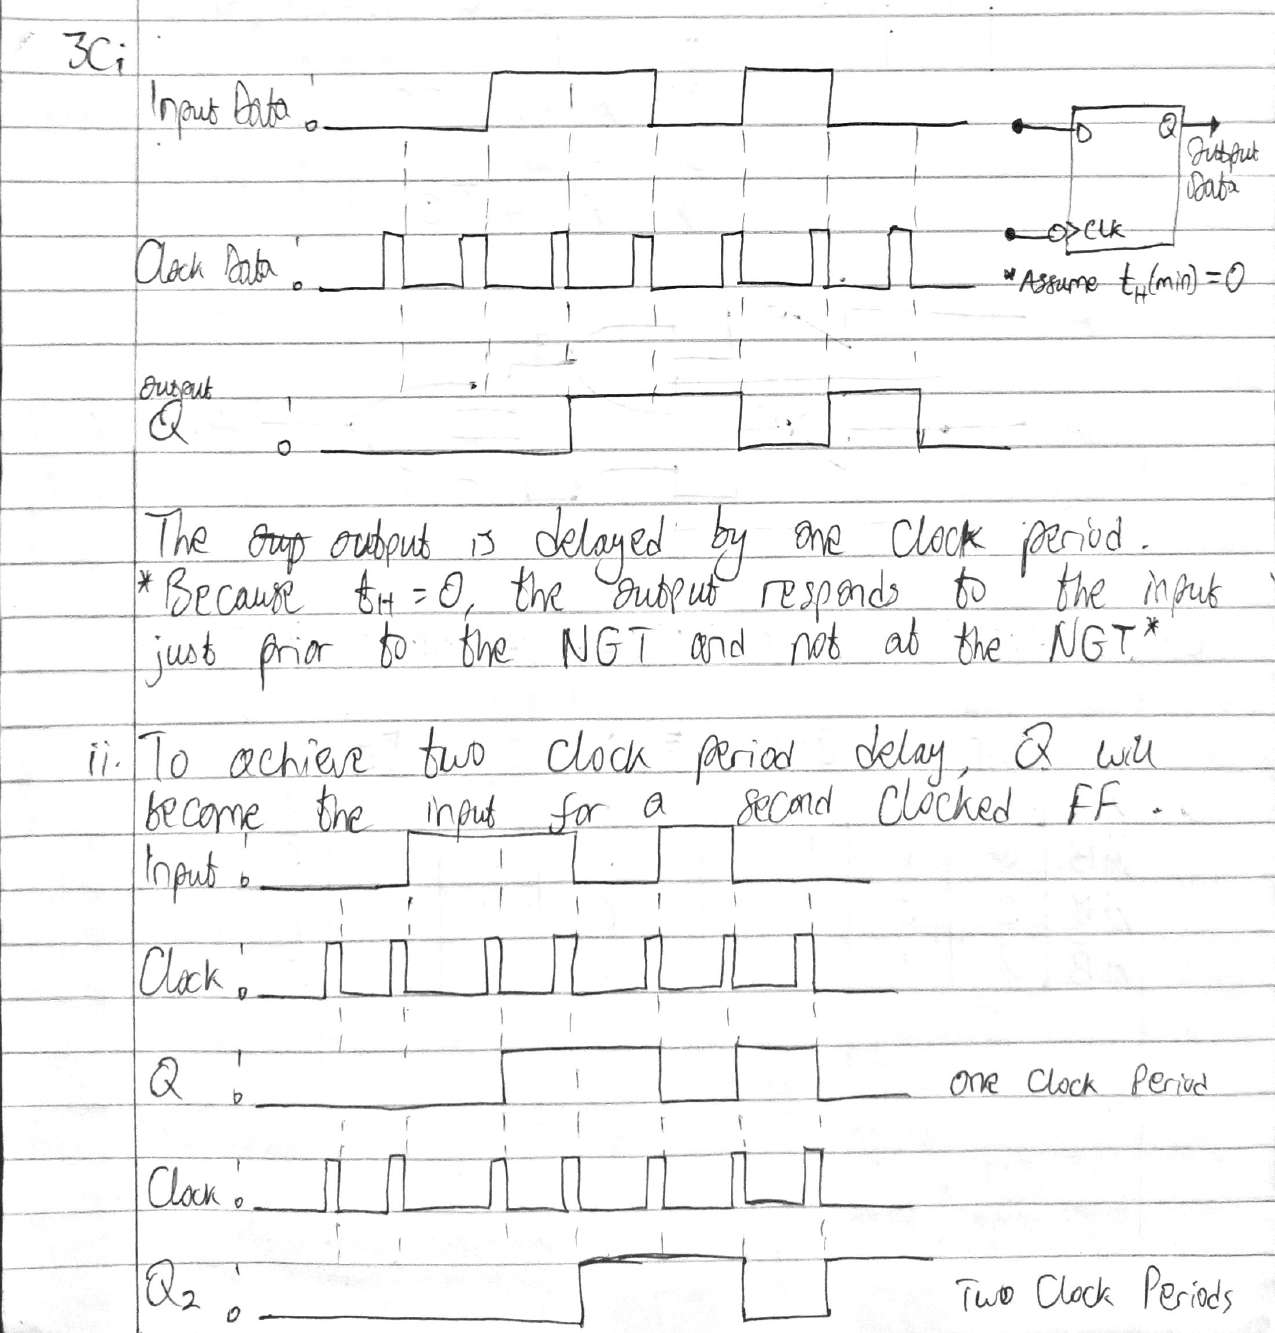 3Ci
Input Data 1 0
D Q
Output
Data
CLK
Clock Data 1 0
*Assume tH(min) = 0
output
Q 1 0
The output is delayed by one Clock period.
*Because tH = 0, the output responds to the input
just prior to the NGT and not at the NGT*
ii. To achieve two Clock period delay, Q will
become the input for a second Clocked FF.
Input 1 0
Clock 1 0
Q 1 0 One Clock Period
Clock 1 0
Q2 1 0 Two Clock Periods